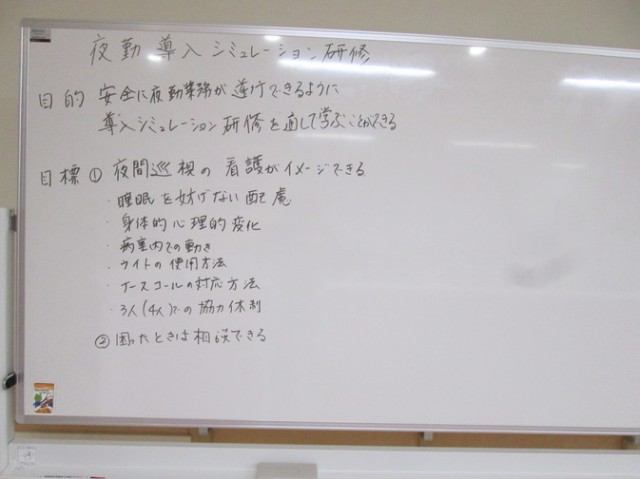 夜勤導入シミュレーション研修
目的 安全に夜勤業務が遂行できるように
導入シミュレーション研修を通して学ぶことができる
目標 ① 夜間巡視の看護がイメージできる
・睡眠を妨げない配慮
・身体的心理的変化
・病室内での動き
・ライトの使用方法
・ナースコールの対応方法
・3人(4人)での協力体制
② 困ったときは相談できる